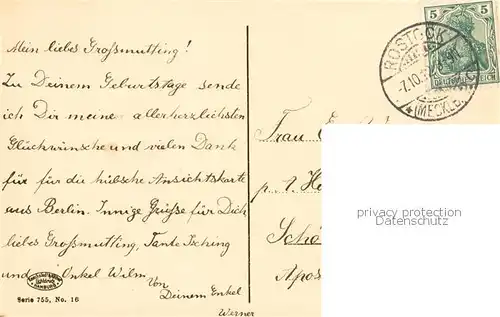 Mein liebes Großmutting!
Zu Deinem Geburtstage sende
ich Dir meine allerherzlichsten
Glückwünsche und vielen Dank
für für die hübsche Ansichtskarte
aus Berlin. Innige Grüße für Dich
liebes Großmutting, Tante Tsching
und Onkel Wilm
Von
Deinem Enkel
Werner
Serie 755, No. 16
HAMBURG
5 5
ROSTOCK
-7.10.
(MECKLB.)
Frau
p. A. He
Schö
Apos
privacy protection
Datenschutz